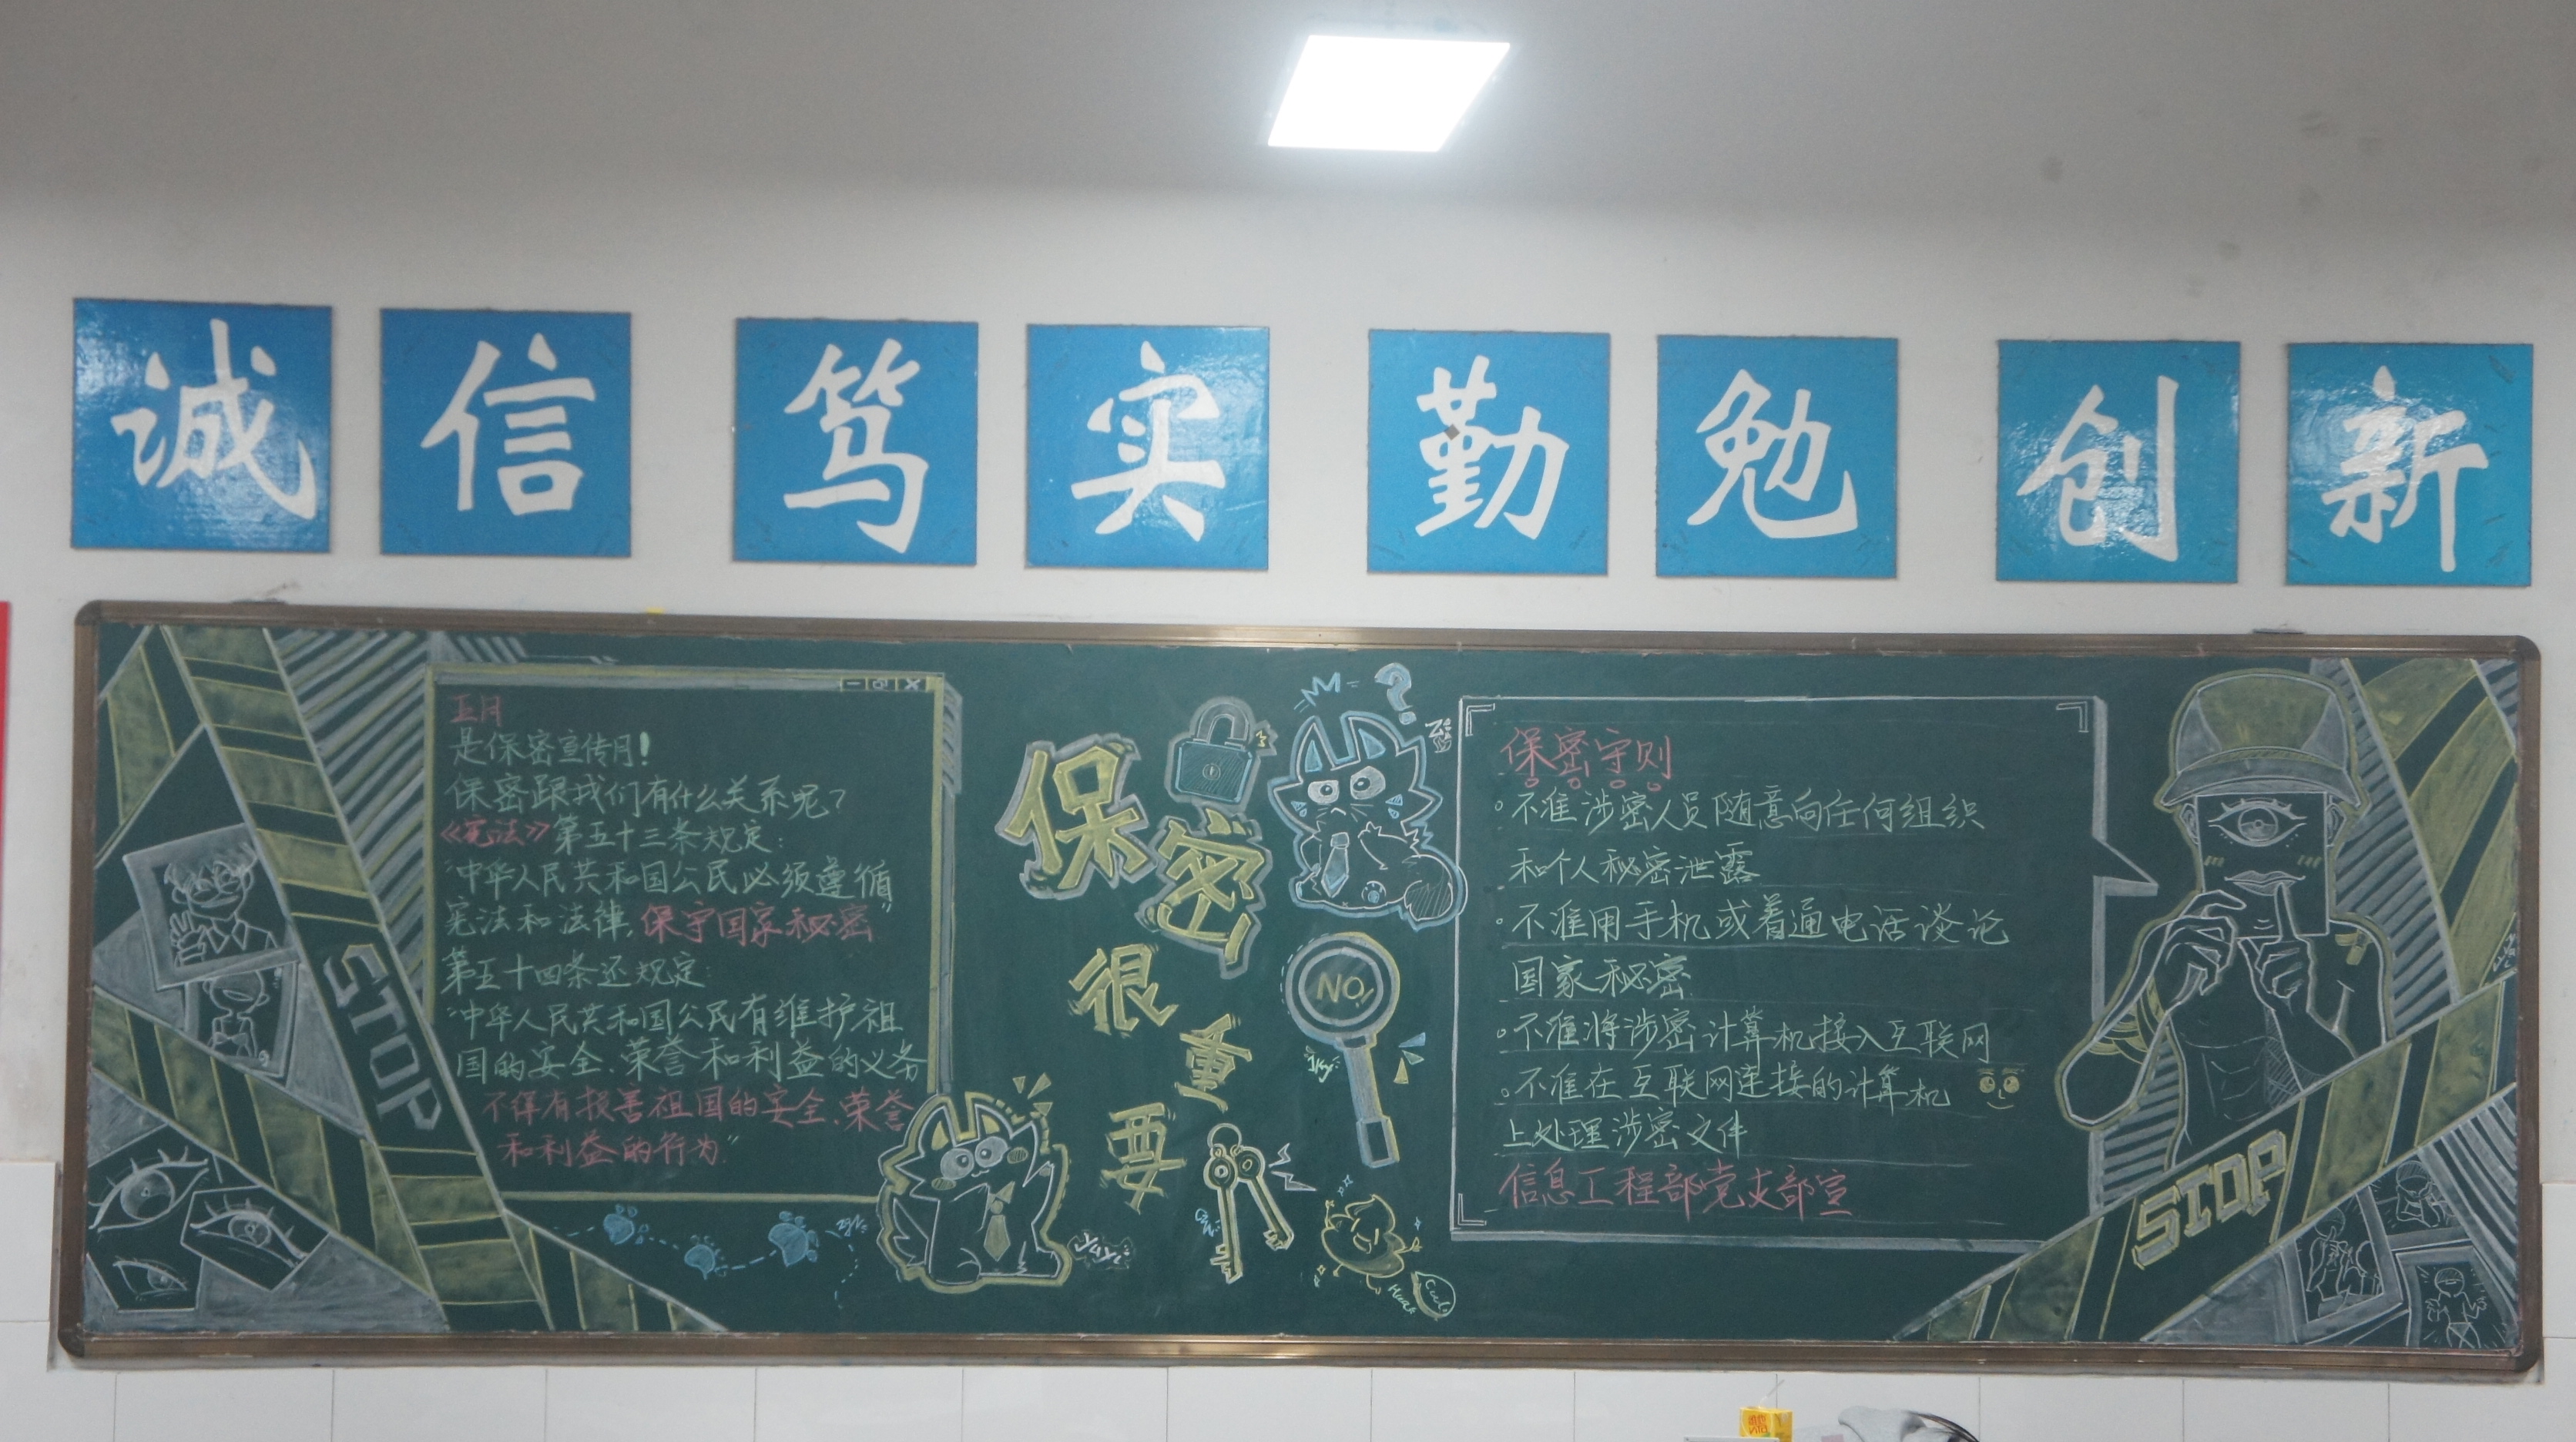 诚信 笃实 勤勉 创新
五月
是保密宣传月!
保密跟我们有什么关系呢?
《宪法》第五十三条规定:
"中华人民共和国公民必须遵循
宪法和法律,保守国家秘密"
第五十四条还规定:
"中华人民共和国公民有维护祖
国的安全、荣誉和利益的义务
不得有损害祖国的安全、荣誉
和利益的行为"
STOP
保密
很
重
要
NO
保密守则
不准涉密人员随意向任何组织
和个人秘密泄露
不准用手机或着通电话谈论
国家秘密
不准将涉密计算机接入互联网
不准在互联网连接的计算机
上处理涉密文件
信息工程部党支部宣
STOP